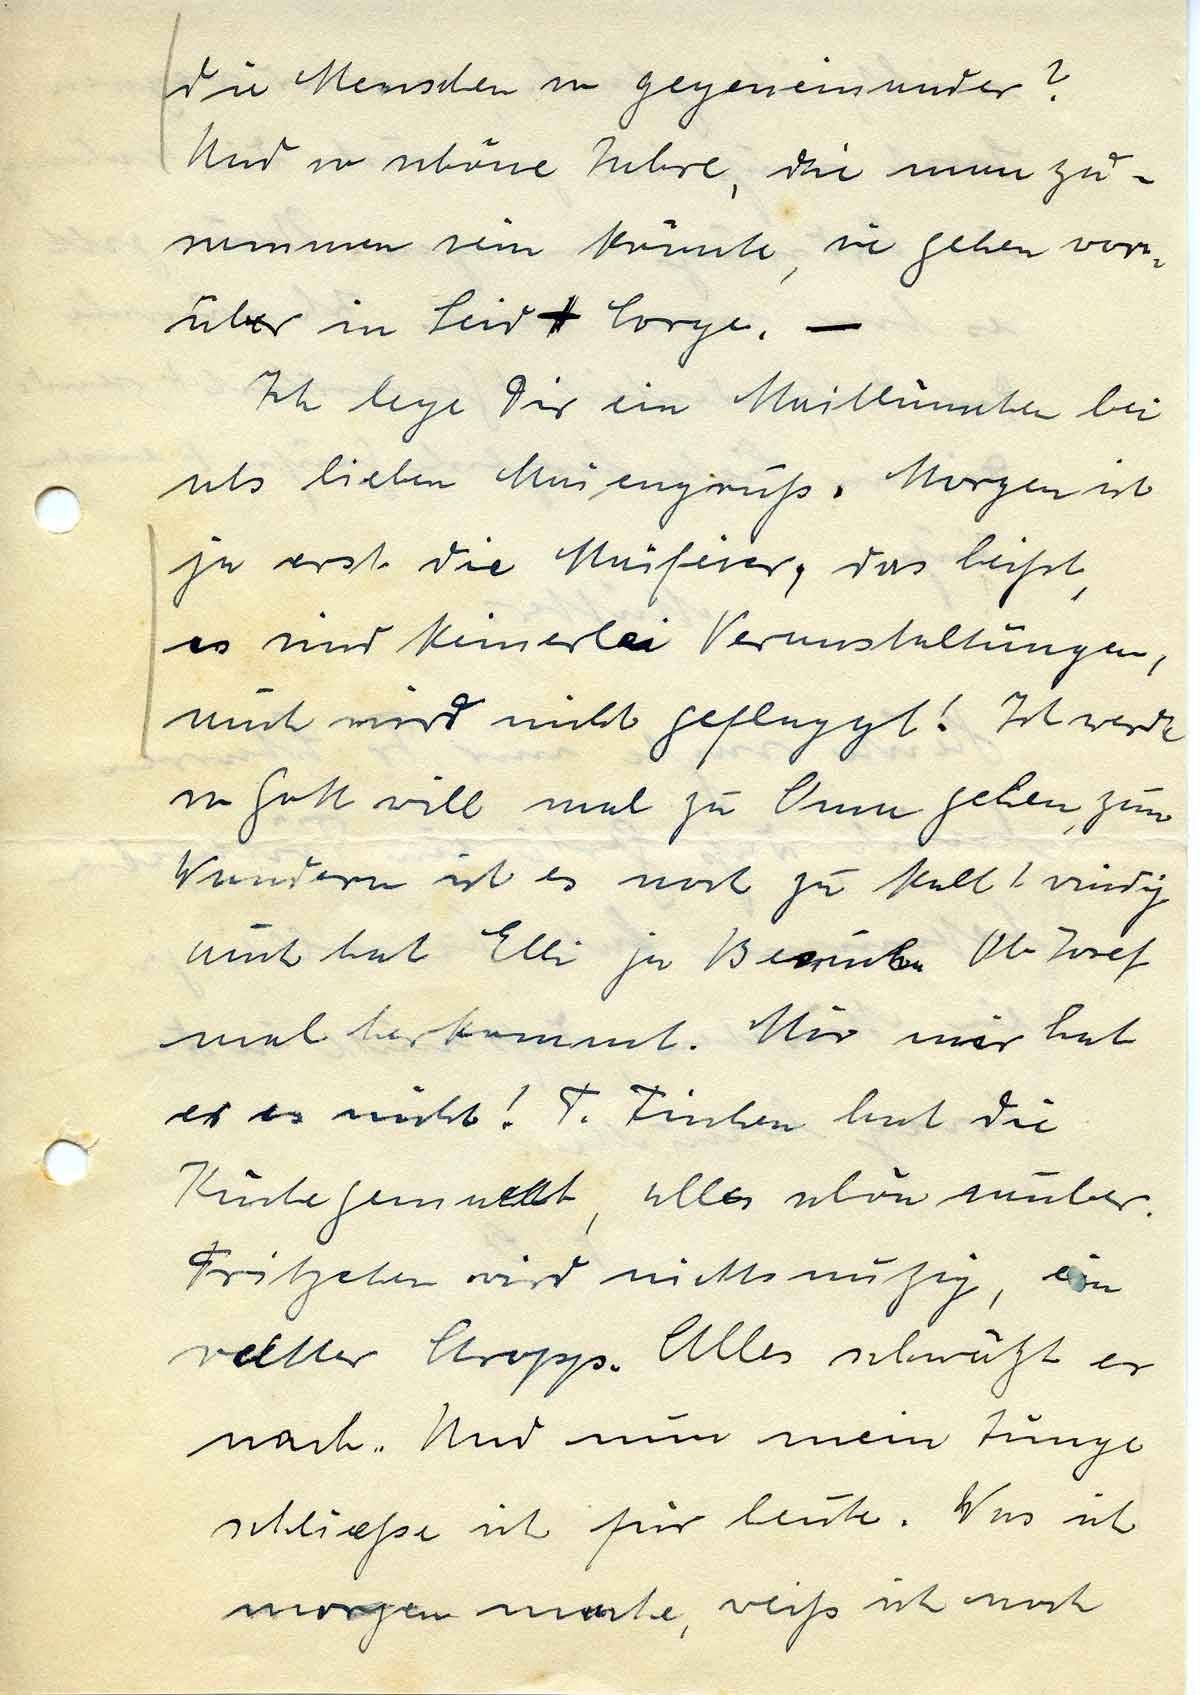 die Menschen so gegeneinander?
Und so schöne Jahre, die man zu-
sammen sein könnte, sie gehen vor-
über in Leid + Sorge. —
Ich lege Dir ein Maiblümchen bei
als lieben Maiengruß. Morgen ist
ja erst die Maifeier, das heißt,
es sind keinerlei Veranstaltungen,
auch wird nicht geflaggt! Ich werde
so Gott will mal zu Oma gehen, zum
Wandern ist es noch zu kalt + windig
auch hat Elli ja Besuch. Ob Josef
mal herkommt. Mir hat
er es nicht! T. Tinchen hat die
Küche gemacht, alles schön sauber.
Fritzchen wird nichtsnutzig, ein
netter Stropp. Alles schwätzt er
nach. Und nun mein Junge
schließe ich für heute. Was ich
morgen mache, weiß ich noch